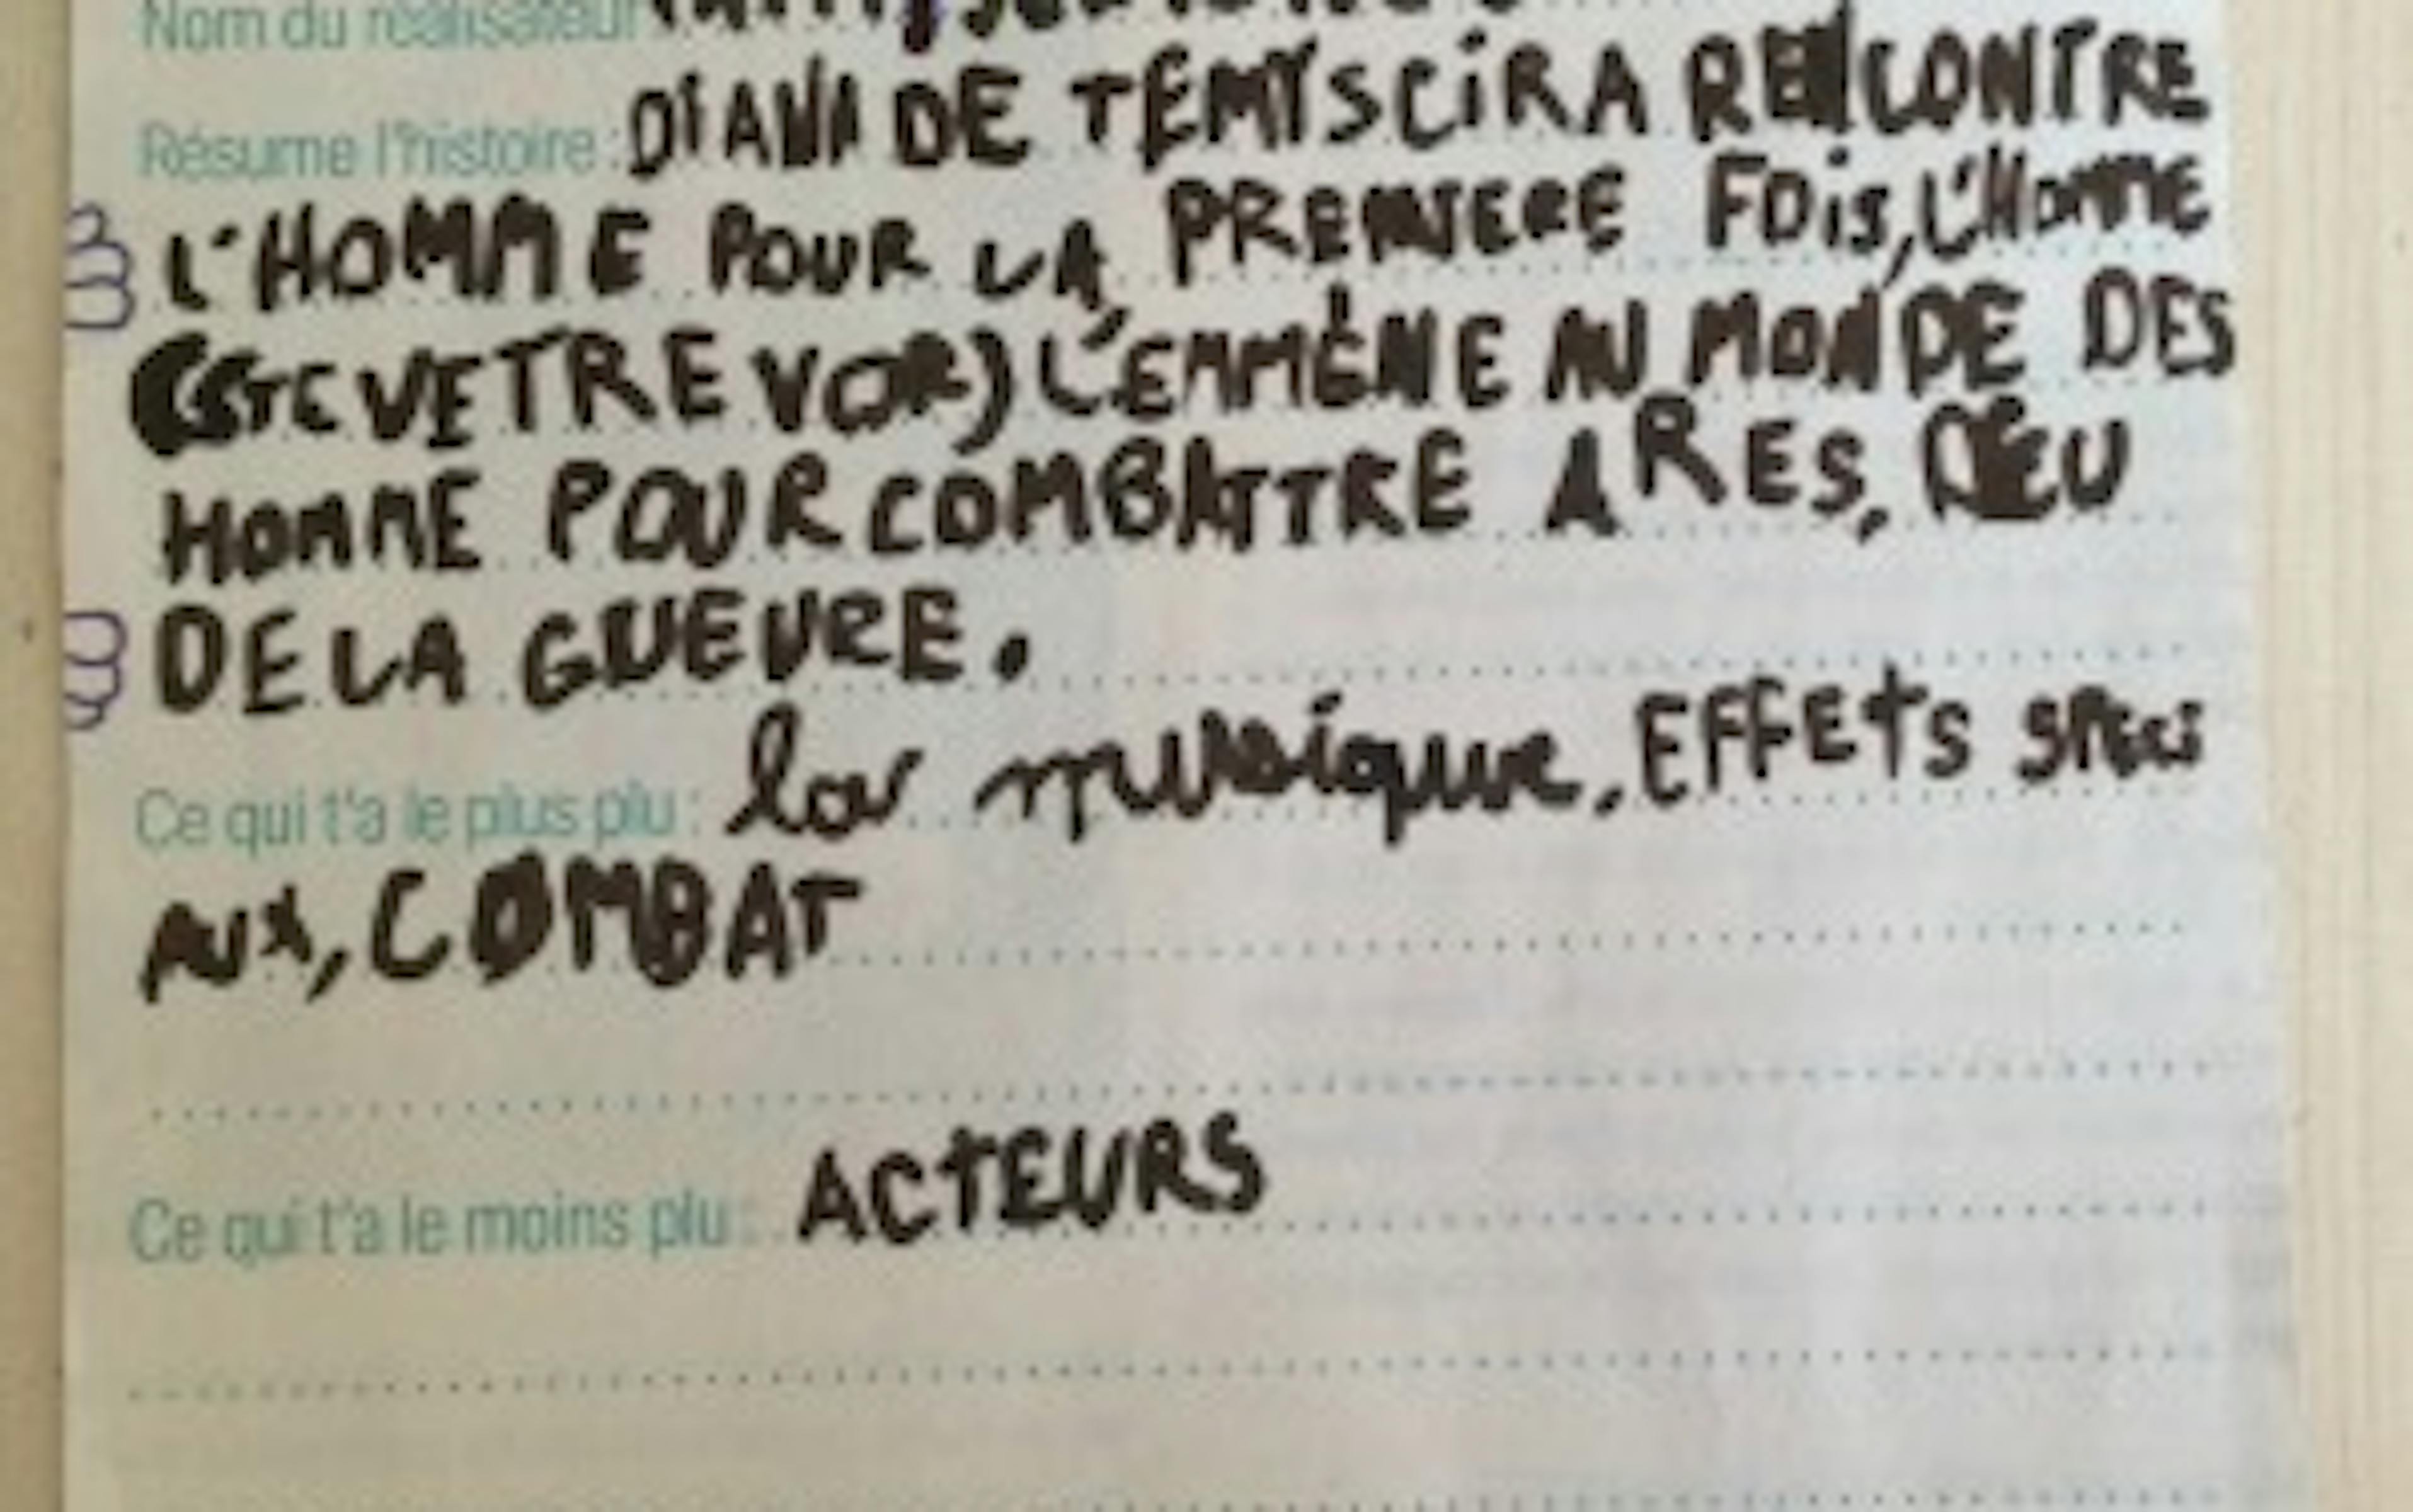 Nom du réalisateur
Résume l'histoire : DIANA DE TEMYSCIRA RENCONTRE
L'HOMME POUR LA PREMIERE FOIS, L'HOMME
(STEVE TREVOR) L'EMMÈNE AU MONDE DES
HOMME POUR COMBATTRE ARES, DIEU
DE LA GUEURE.
Ce qui t'a le plus plu : la musique, EFFETS SPECI
AUX, COMBAT
Ce qui t'a le moins plu : ACTEURS